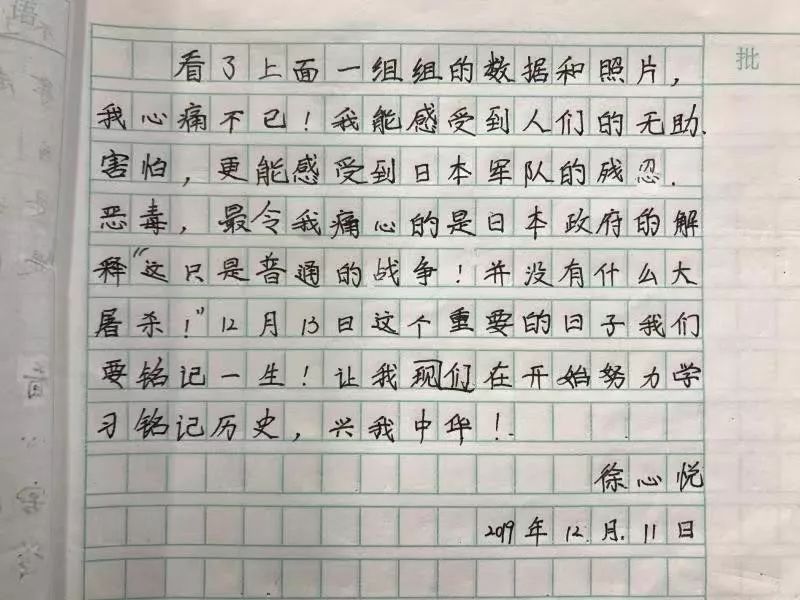 批
看了上面一组组的数据和照片，
我心痛不已！我能感受到人们的无助.
害怕，更能感受到日本军队的残忍.
恶毒，最令我痛心的是日本政府的解
释“这只是普通的战争！并没有什么大
屠杀！”12月13日这个重要的日子我们
要铭记一生！让我现们在开始努力学
习铭记历史，兴我中华！
徐心悦
2019年12月.11日